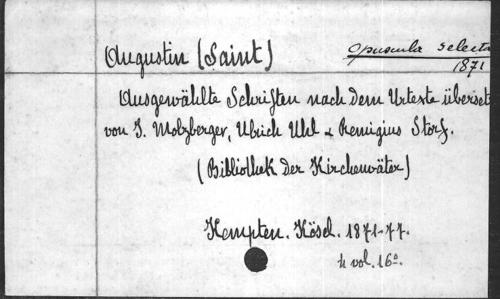 Augustin (Saint)
Opuscula select
1871
Ausgewählte Schriften nach dem Urtexte überset
von J. Molzberger, Ulrich Uhl & Remigius Storf.
(Bibliothek der Kirchenväter)
Kempten. Kösel. 1871-77.
4 vol. 16º.